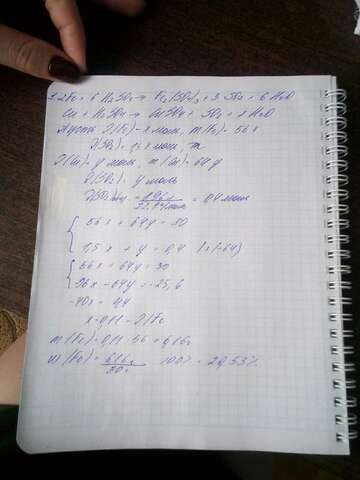 2Fe + 6H₂SO₄ → Fe₂(SO₄)₃ + 3SO₂ + 6H₂O
Cu + H₂SO₄ → CuSO₄ + SO₂ + 2H₂O
Пусть ν(Fe) - x моль, m(Fe) - 56x
ν(SO₂) = 1,5x моль
ν(Cu) = y моль, m(Cu) = 64y
ν(SO₂) = y моль
= 0,4 моль
56x + 64y = 30
1,5x + y = 0,4 | x(-64)
56x + 64y = 30
96x - 64y = -25,6
-40x = 4,4
x = 0,11 - ν(Fe
m(Fe) = 0,11 · 56 = 6,16г
ω(Fe) = 6,16г / 30г 100% = 20,53%